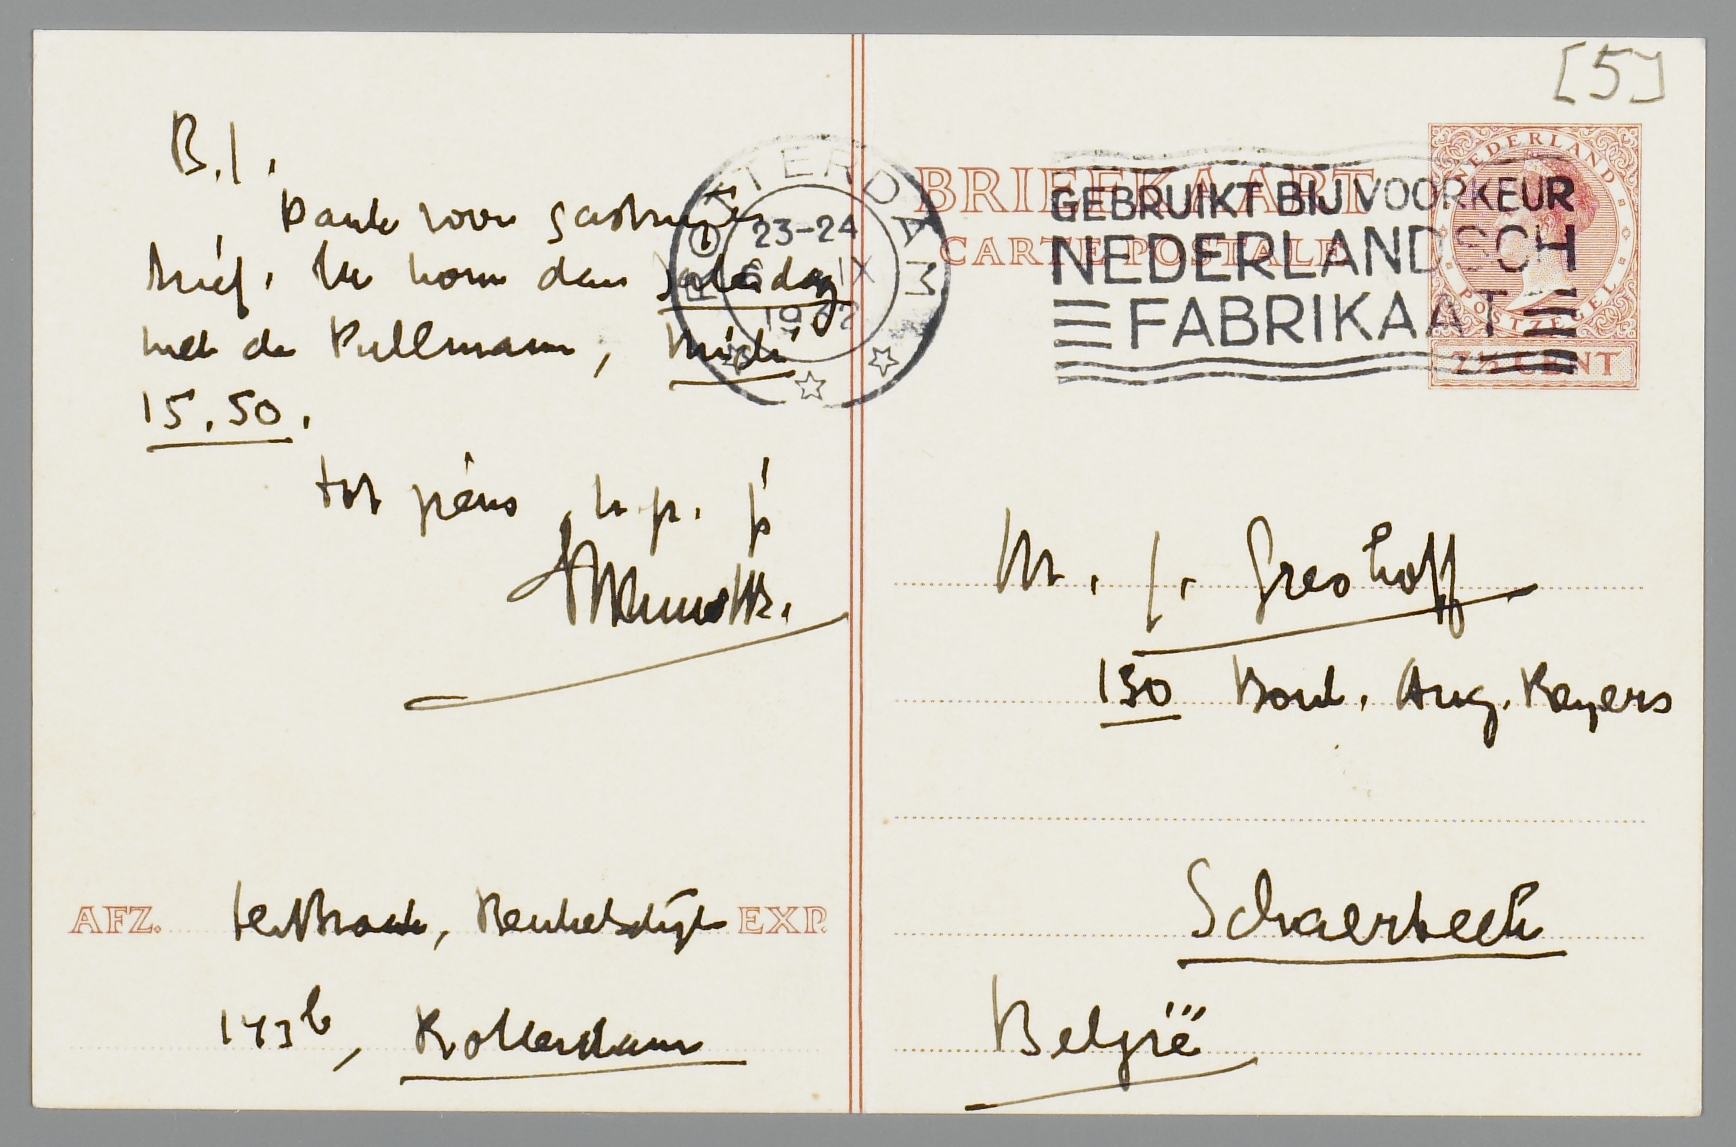 B.J.
Dank voor gastvrijen
brief. Ik kom dan Zaterdag
met de Pullmann, Midi
15.50.
tot ziens, h.p.
Menno ttr.
AFZ. ter Braak, Beukelsdijk EXP.
143b, Rotterdam
[5]
ROTTERDAM
23-24
IX
1932
BRIEFKAART
CARTE POSTALE
GEBRUIKT BIJ VOORKEUR
NEDERLANDSCH
FABRIKAAT
NEDERLAND
POSTZEGEL
7½ CENT
M. J. Greshoff
130 Boul. Aug. Reyers
Schaerbeek
België